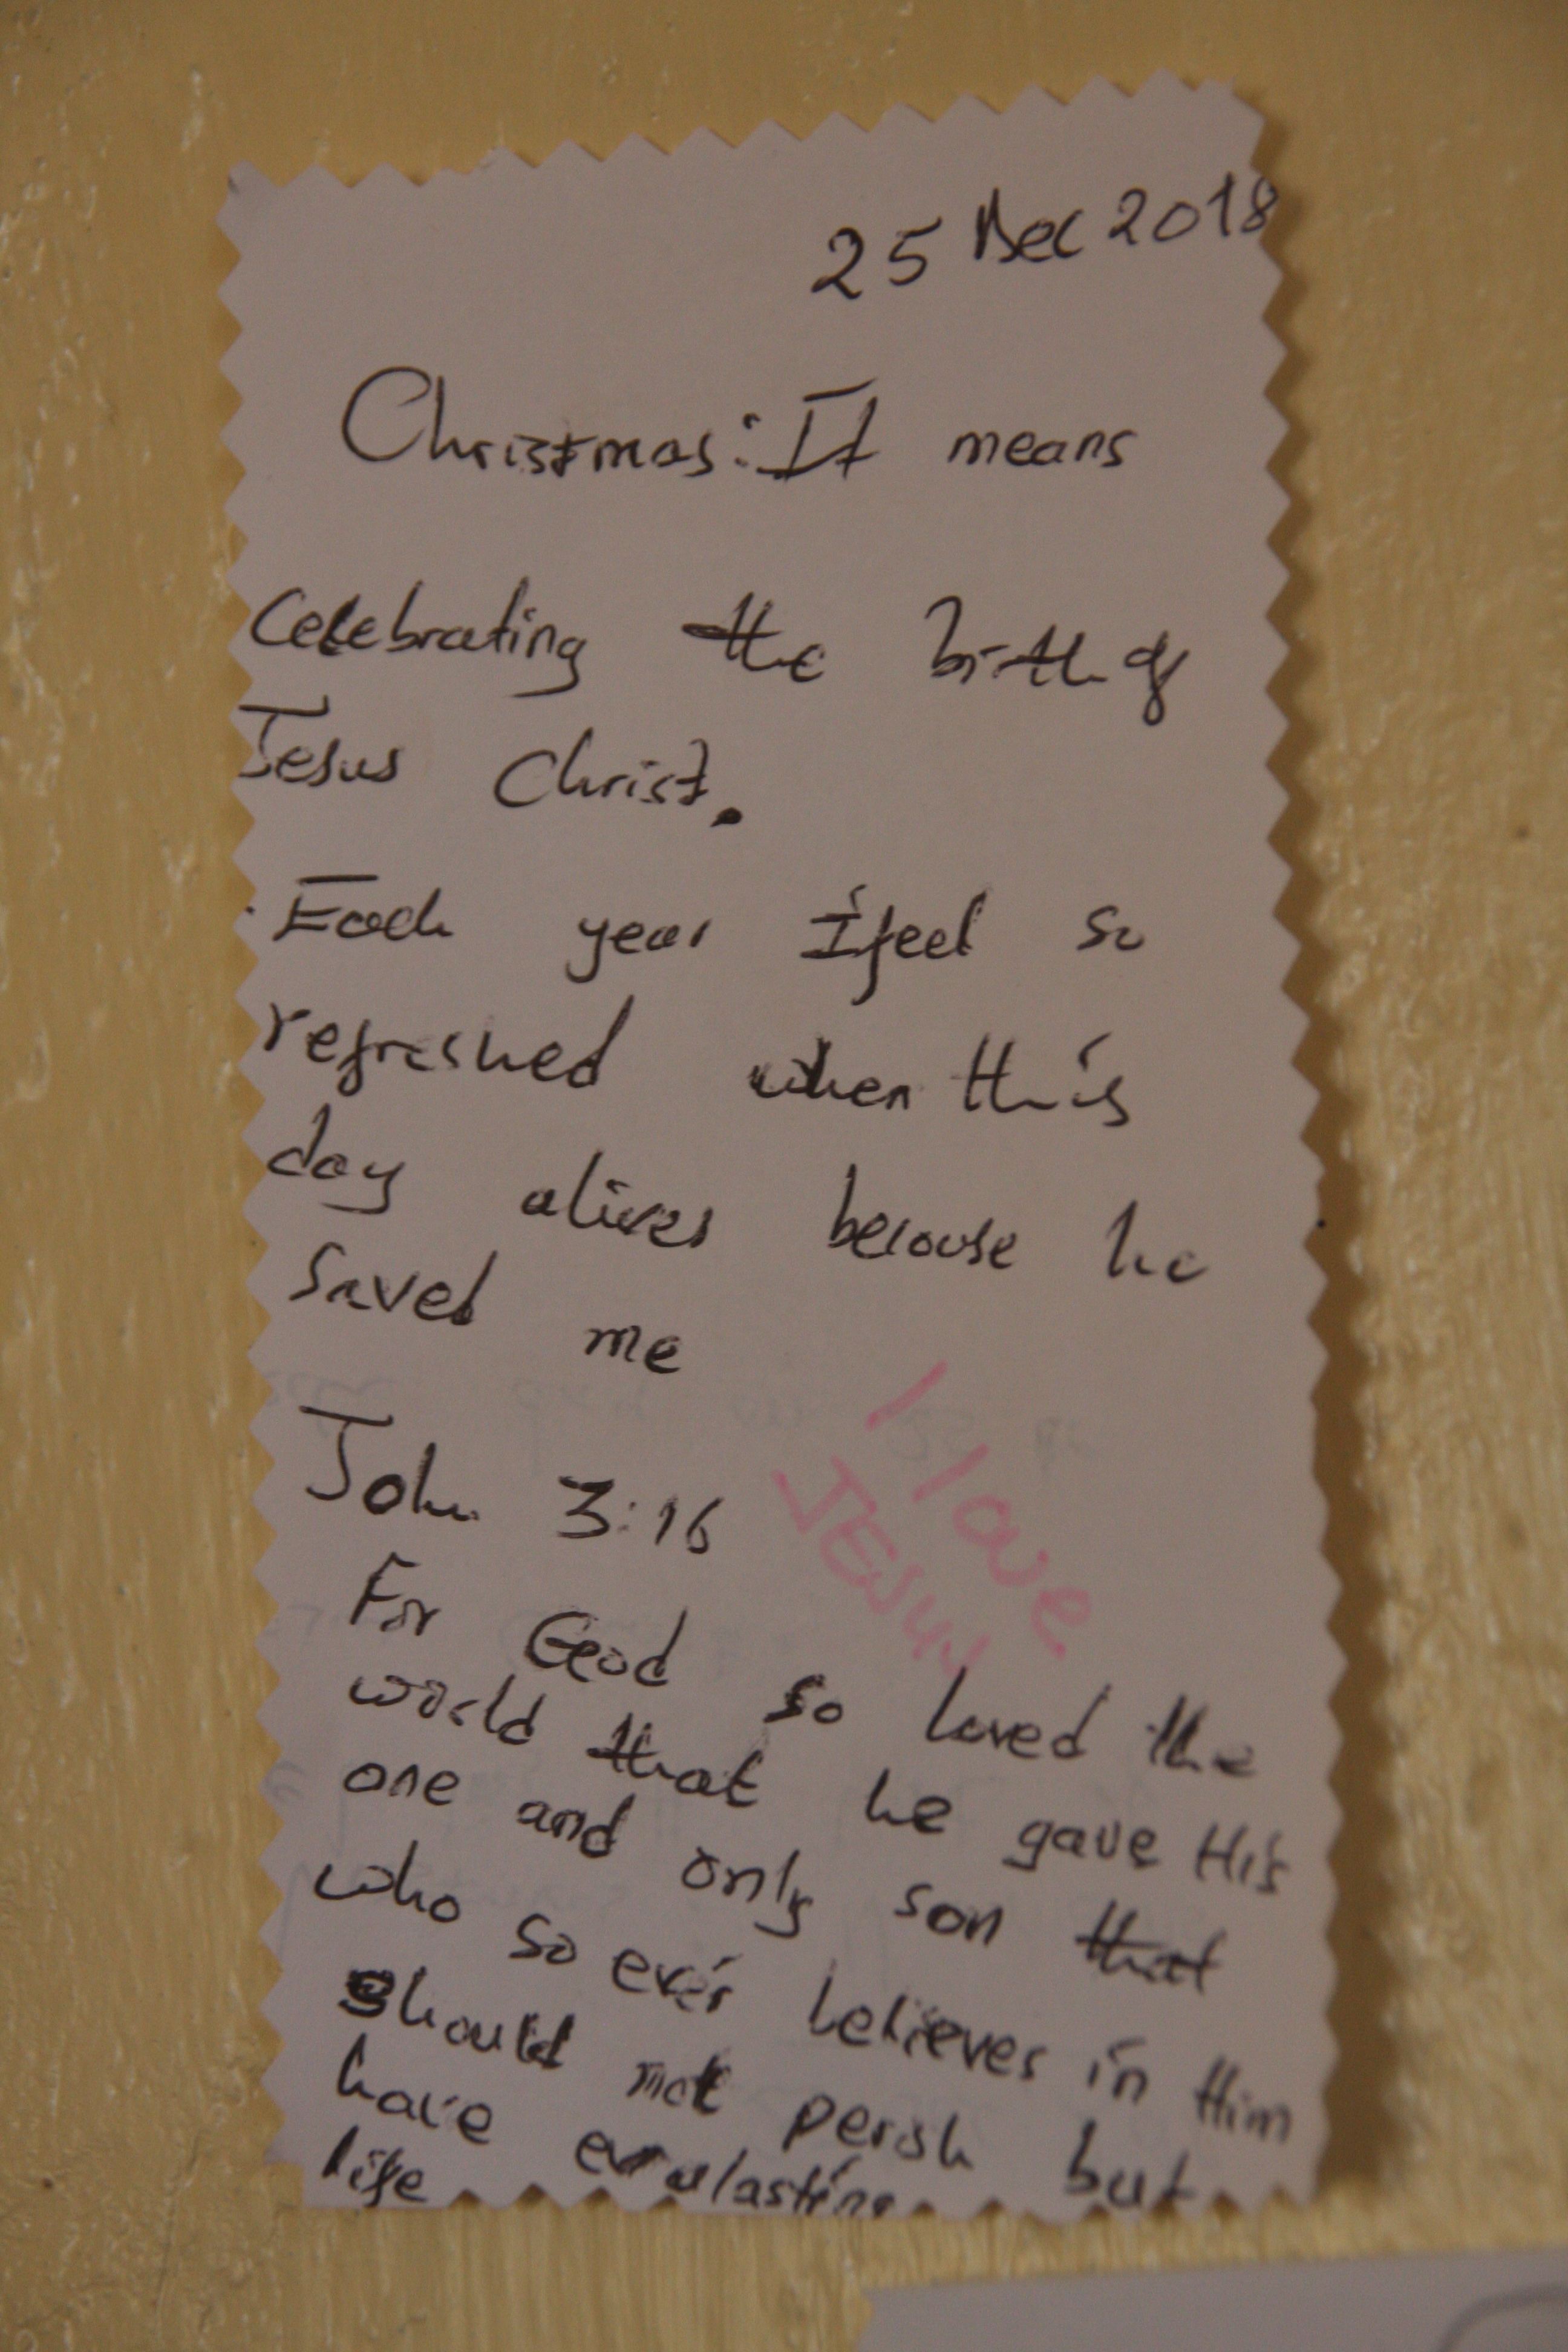 25 Dec 2018
Christmas: It means
Celebrating the birth of
Jesus Christ.
Each year I feel so
refreshed when this
day alives because he
saved me
John 3:16
I love
JESUS
For God so loved the
world that he gave His
one and only son that
who so ever believes in Him
should not perish but
have everlasting
life